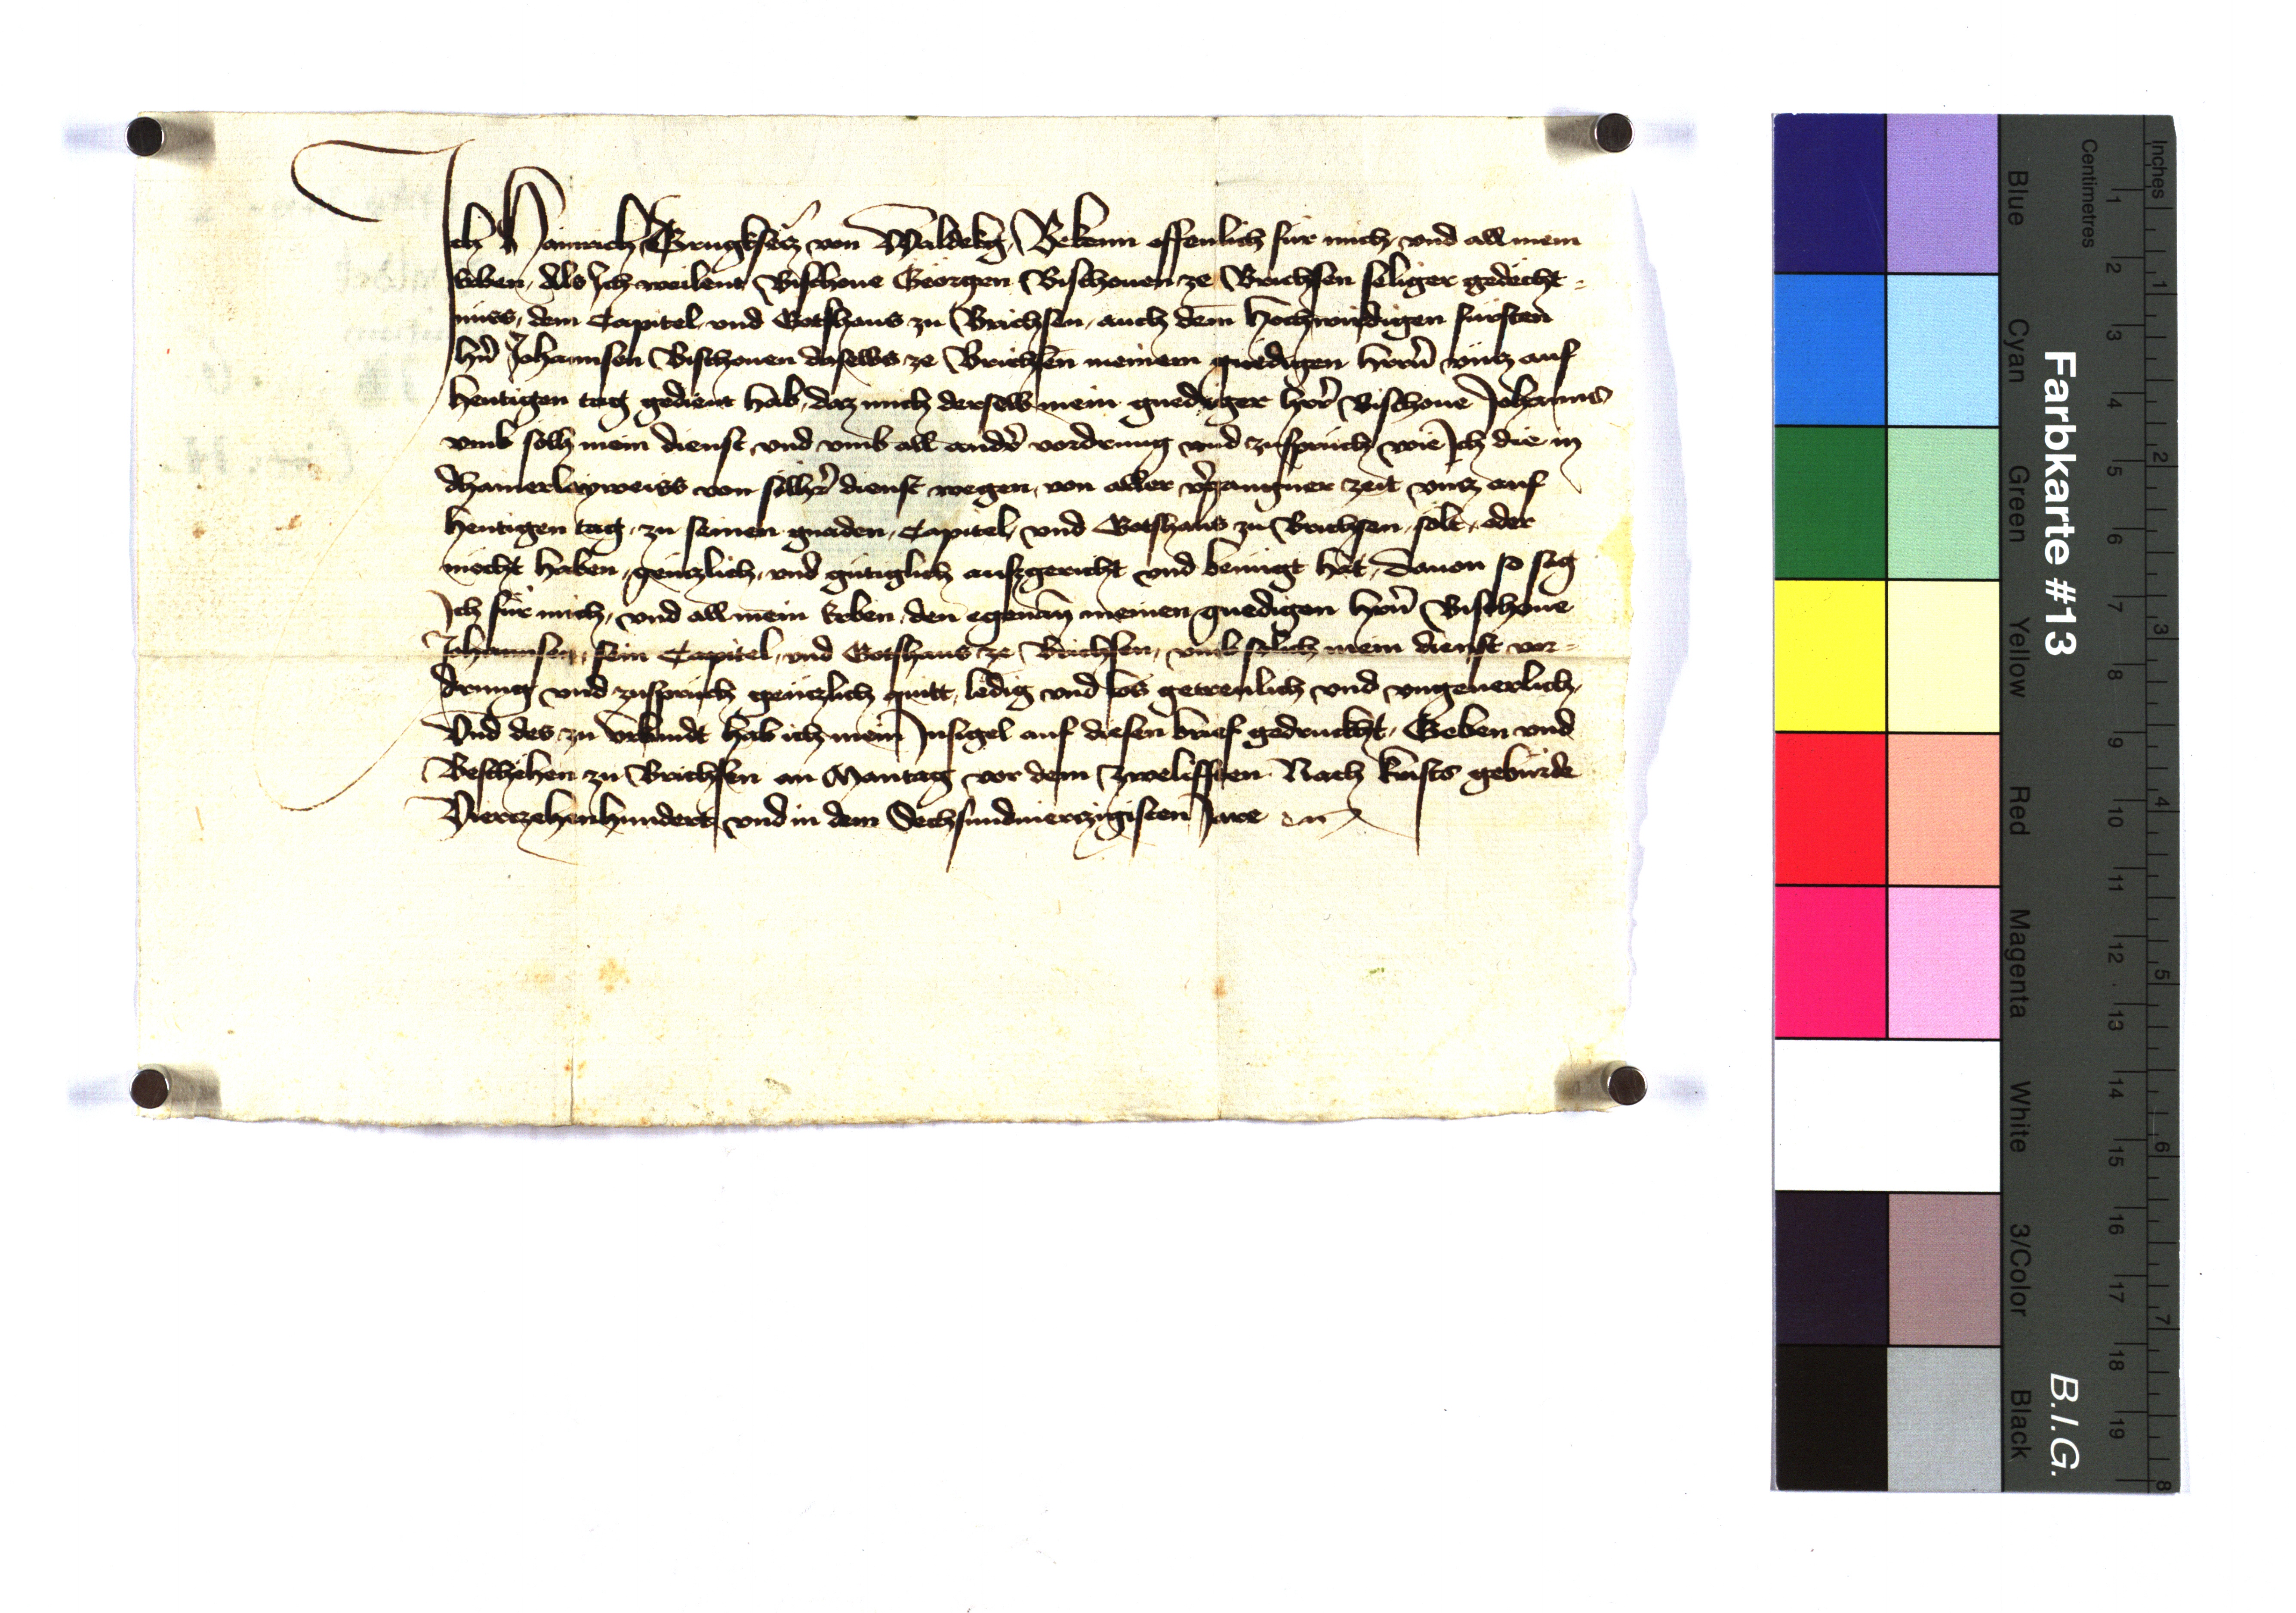 Ich Hainrich Drugksecz von Waldekg Bekenn offenlich für mich, vnd all mein
erben, Als Ich weilent Bischoue Georgen Bischouen ze Brichsen seliger gedecht-
nüss, dem Capitel vnd Gotshaus zu Brichsen, auch dem hochwirdigen fürsten
hrn Johannsen Bischouen daselbs ze Brichsen meinem gnedigen herrn vncz auf
hewtigen tag gedient hab, daz mich derselb mein gnediger herr Bischoue Johanns
vmb solh mein dienst vnd vmb all ander vordrung vnd zuspruch wie Ich die in
dhainerlayweiss von solher dienst wegen, von aller vergangner zeit vncz auf
hewtigen tag, zu seinen gnaden, Capitel, vnd Gotshaus zu Brichsen, solt, oder
möcht haben, genczlich, vnd gütiglich aufzgericht vnd benügt hat, dauon so sag
Ich für mich, vnd all mein erben, den egenan meinen gnedigen hern Bischoue
Johannsen, sein Capitel, vnd Gotshaus ze Brichsen, vmb solich mein dienst vor-
drung vnd zuspruch genczlich quitt, ledig vnd los getrewlich vnd vngeuerlich,
Vnd des zu vrkundt hab ich mein Insigel auf diesen brief gedruckht, Geben vnd
Beschehen zu Brichsen an Mantag vor dem Zwelifften Nach krists gebürde
Vierczehenhundert vnd in dem Sechsundvierczigisten Jare
Farbkarte #13
B.I.G.
Centimetres
Inches
Blue
Cyan
Green
Yellow
Red
Magenta
White
3/Color
Black
1 2 3 4 5 6 7 8 9 10 11 12 13 14 15 16 17 18 19
1 2 3 4 5 6 7 8